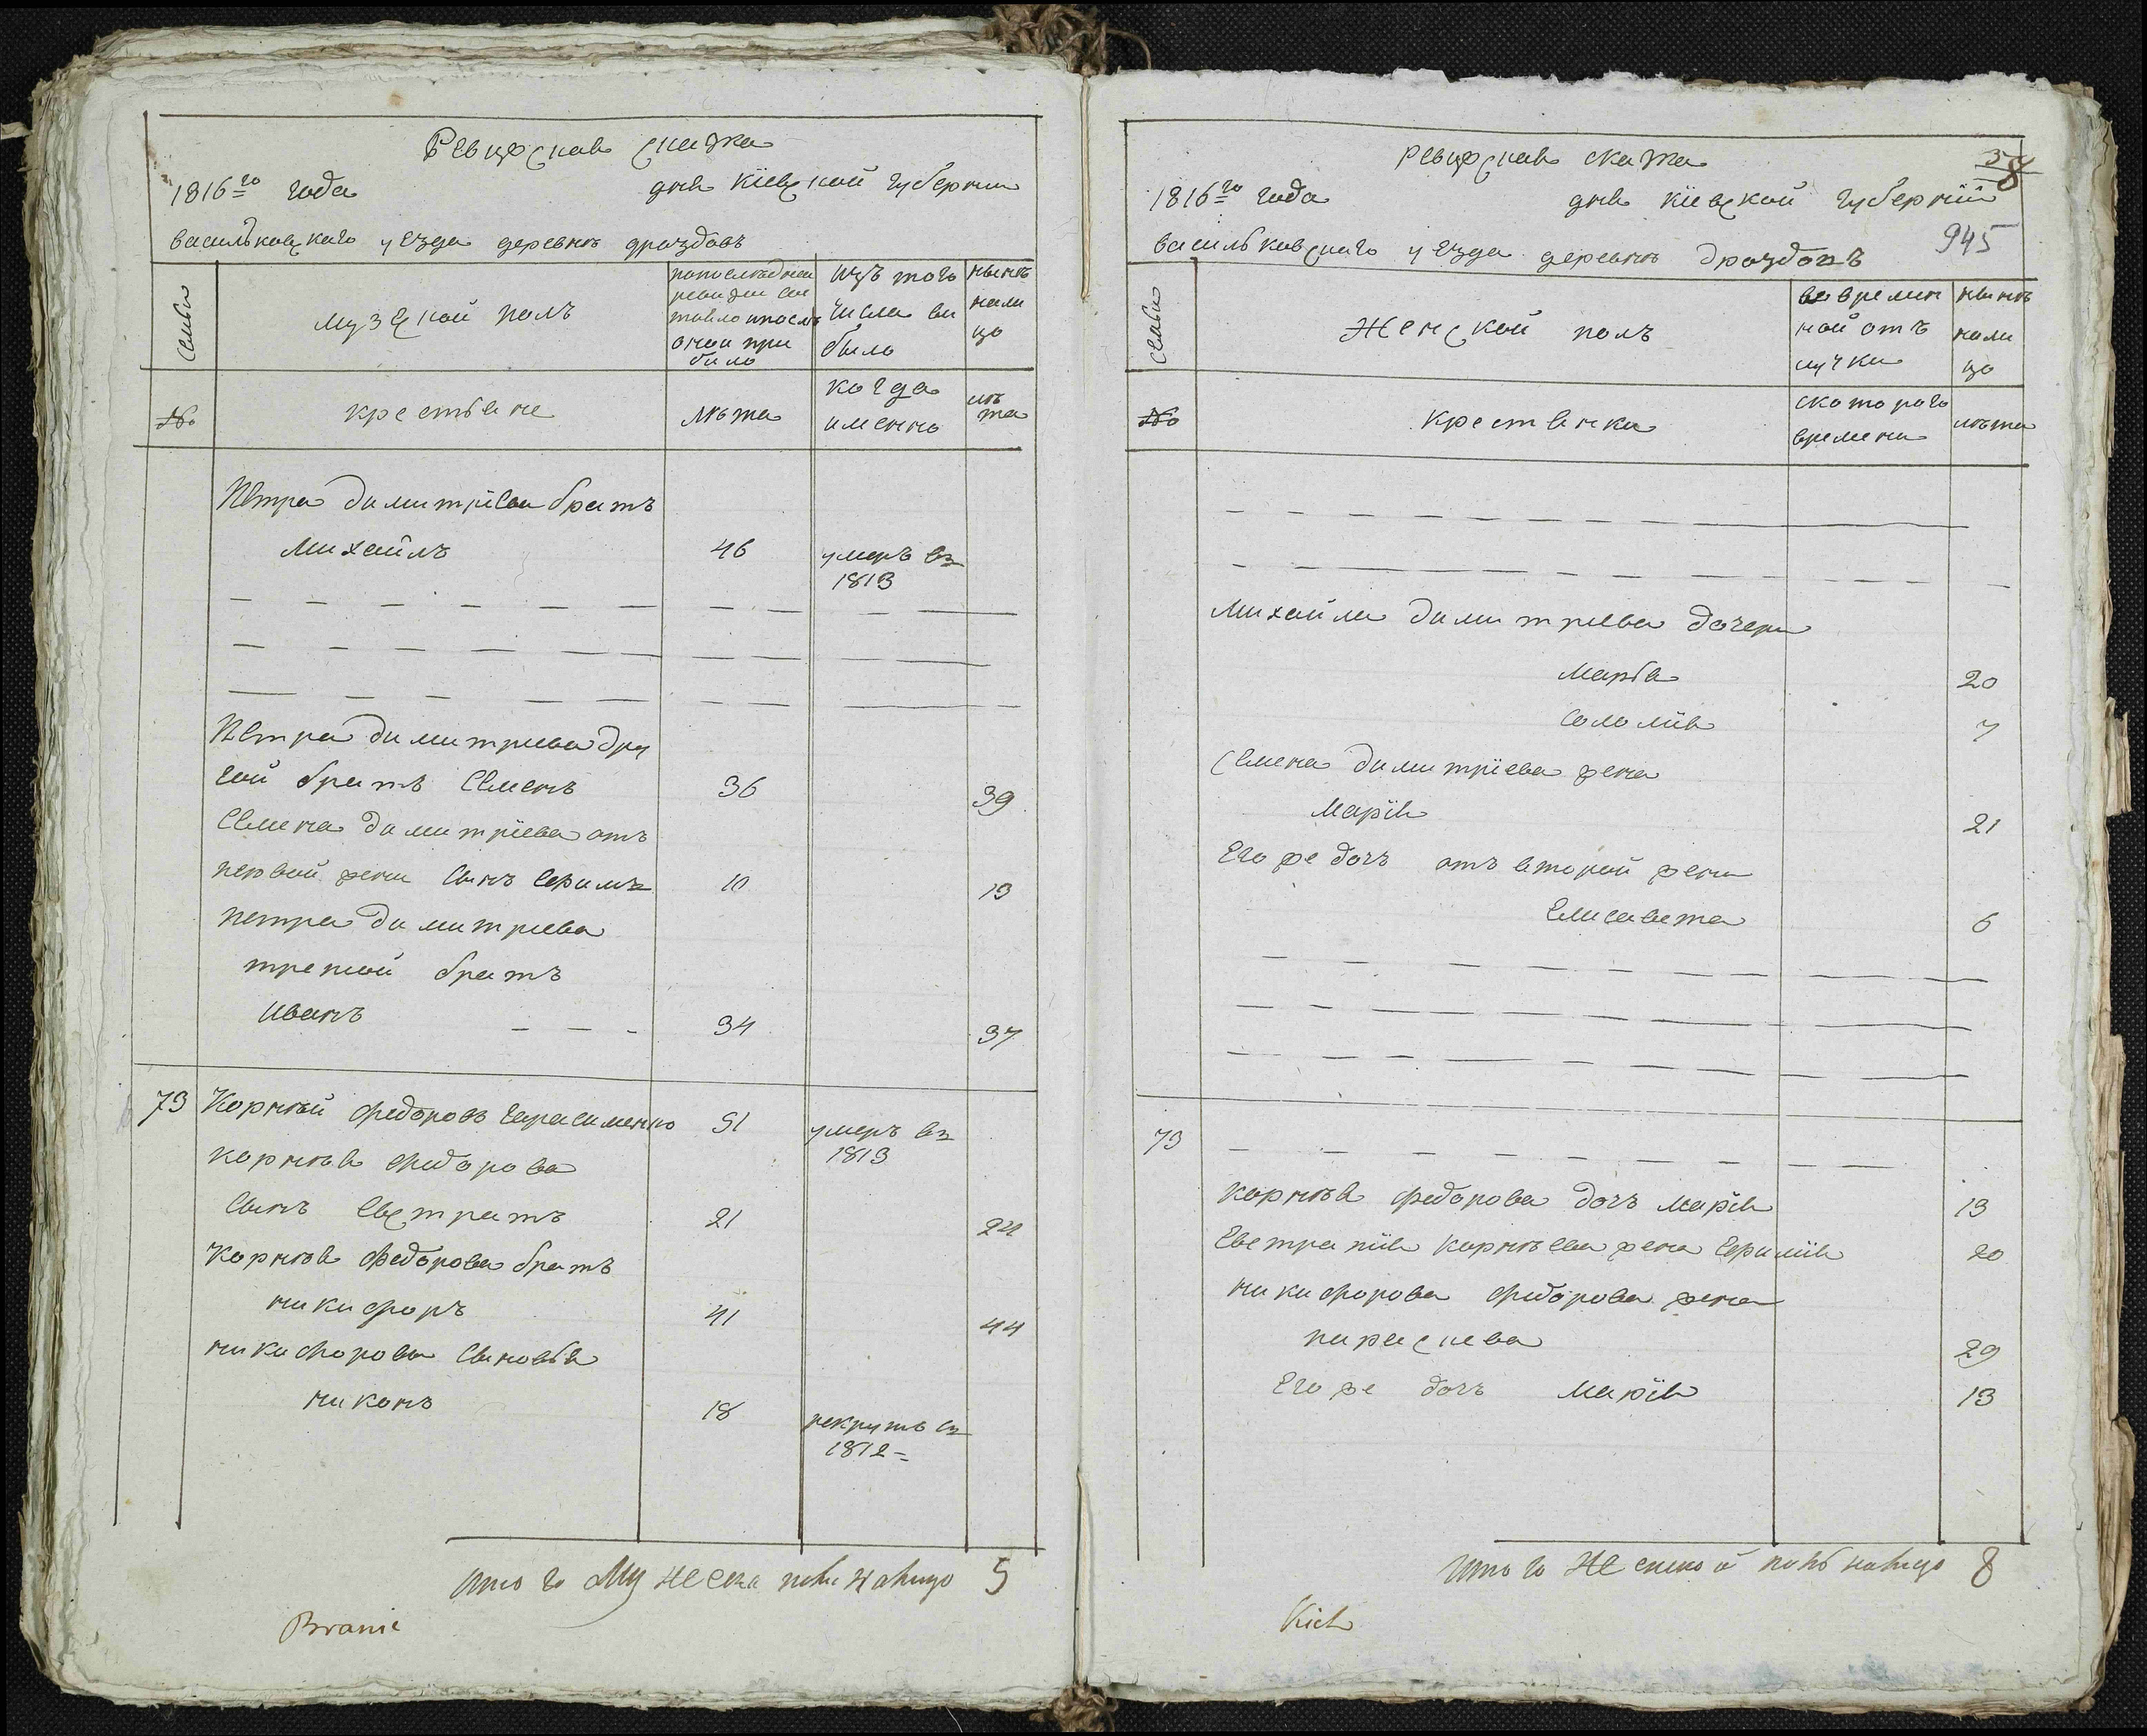 Ревизская сказка
1816го года для Кіевской губернии
васильковскаго уезда деревнѣ дроздовъ
семьи
мужеской полъ
попоследней
ревизіи со
стояло ипослѣ
оной при
было
изъ того
числа вы
было
нынѣ
нали
цо
№
крестьяне
лѣта
когда
именно
лѣ
та
Петра димитріева братъ
михайлъ 46 умеръ въ
1813
Петра димитриева дру
гой братъ Семенъ 36 39
Семена димитріева отъ
первой жени сынъ Ефимъ 10 13
петра димитриева
третой братъ
иванъ 34 37
73 Корнѣй федоровъ герасименко 51 умеръ въ
1813
корнѣя федорова
сынъ Евстратъ 21 24
Корнѣя федорова братъ
никифоръ 41 44
никифорова сыновья
никонъ 18 рекрутъ въ
1812
Итого Мужеска пола налицо 5
Branie
ревизская сказка
8
1816го года для кіевской губерніи
945
васильковскаго уезда деревнѣ дроздовъ
семьи
Женской полъ
во времен
ной отъ
лучки
нынѣ
нали
цо
№
крестьянки
скоторого
времени
лѣта
михайла димитриева дочери
марья 20
соломія 7
Семена димитріева жена
марія 21
Его же дочь отъ второй жени
Елисавета 6
73
корнѣя федорова дочь марія 13
Евстратія корнѣева жена Ефимія 20
никифорова федорова жена
параскева 29
Его же дочь марія 13
Итого Женской полъ налицо 8
Kich